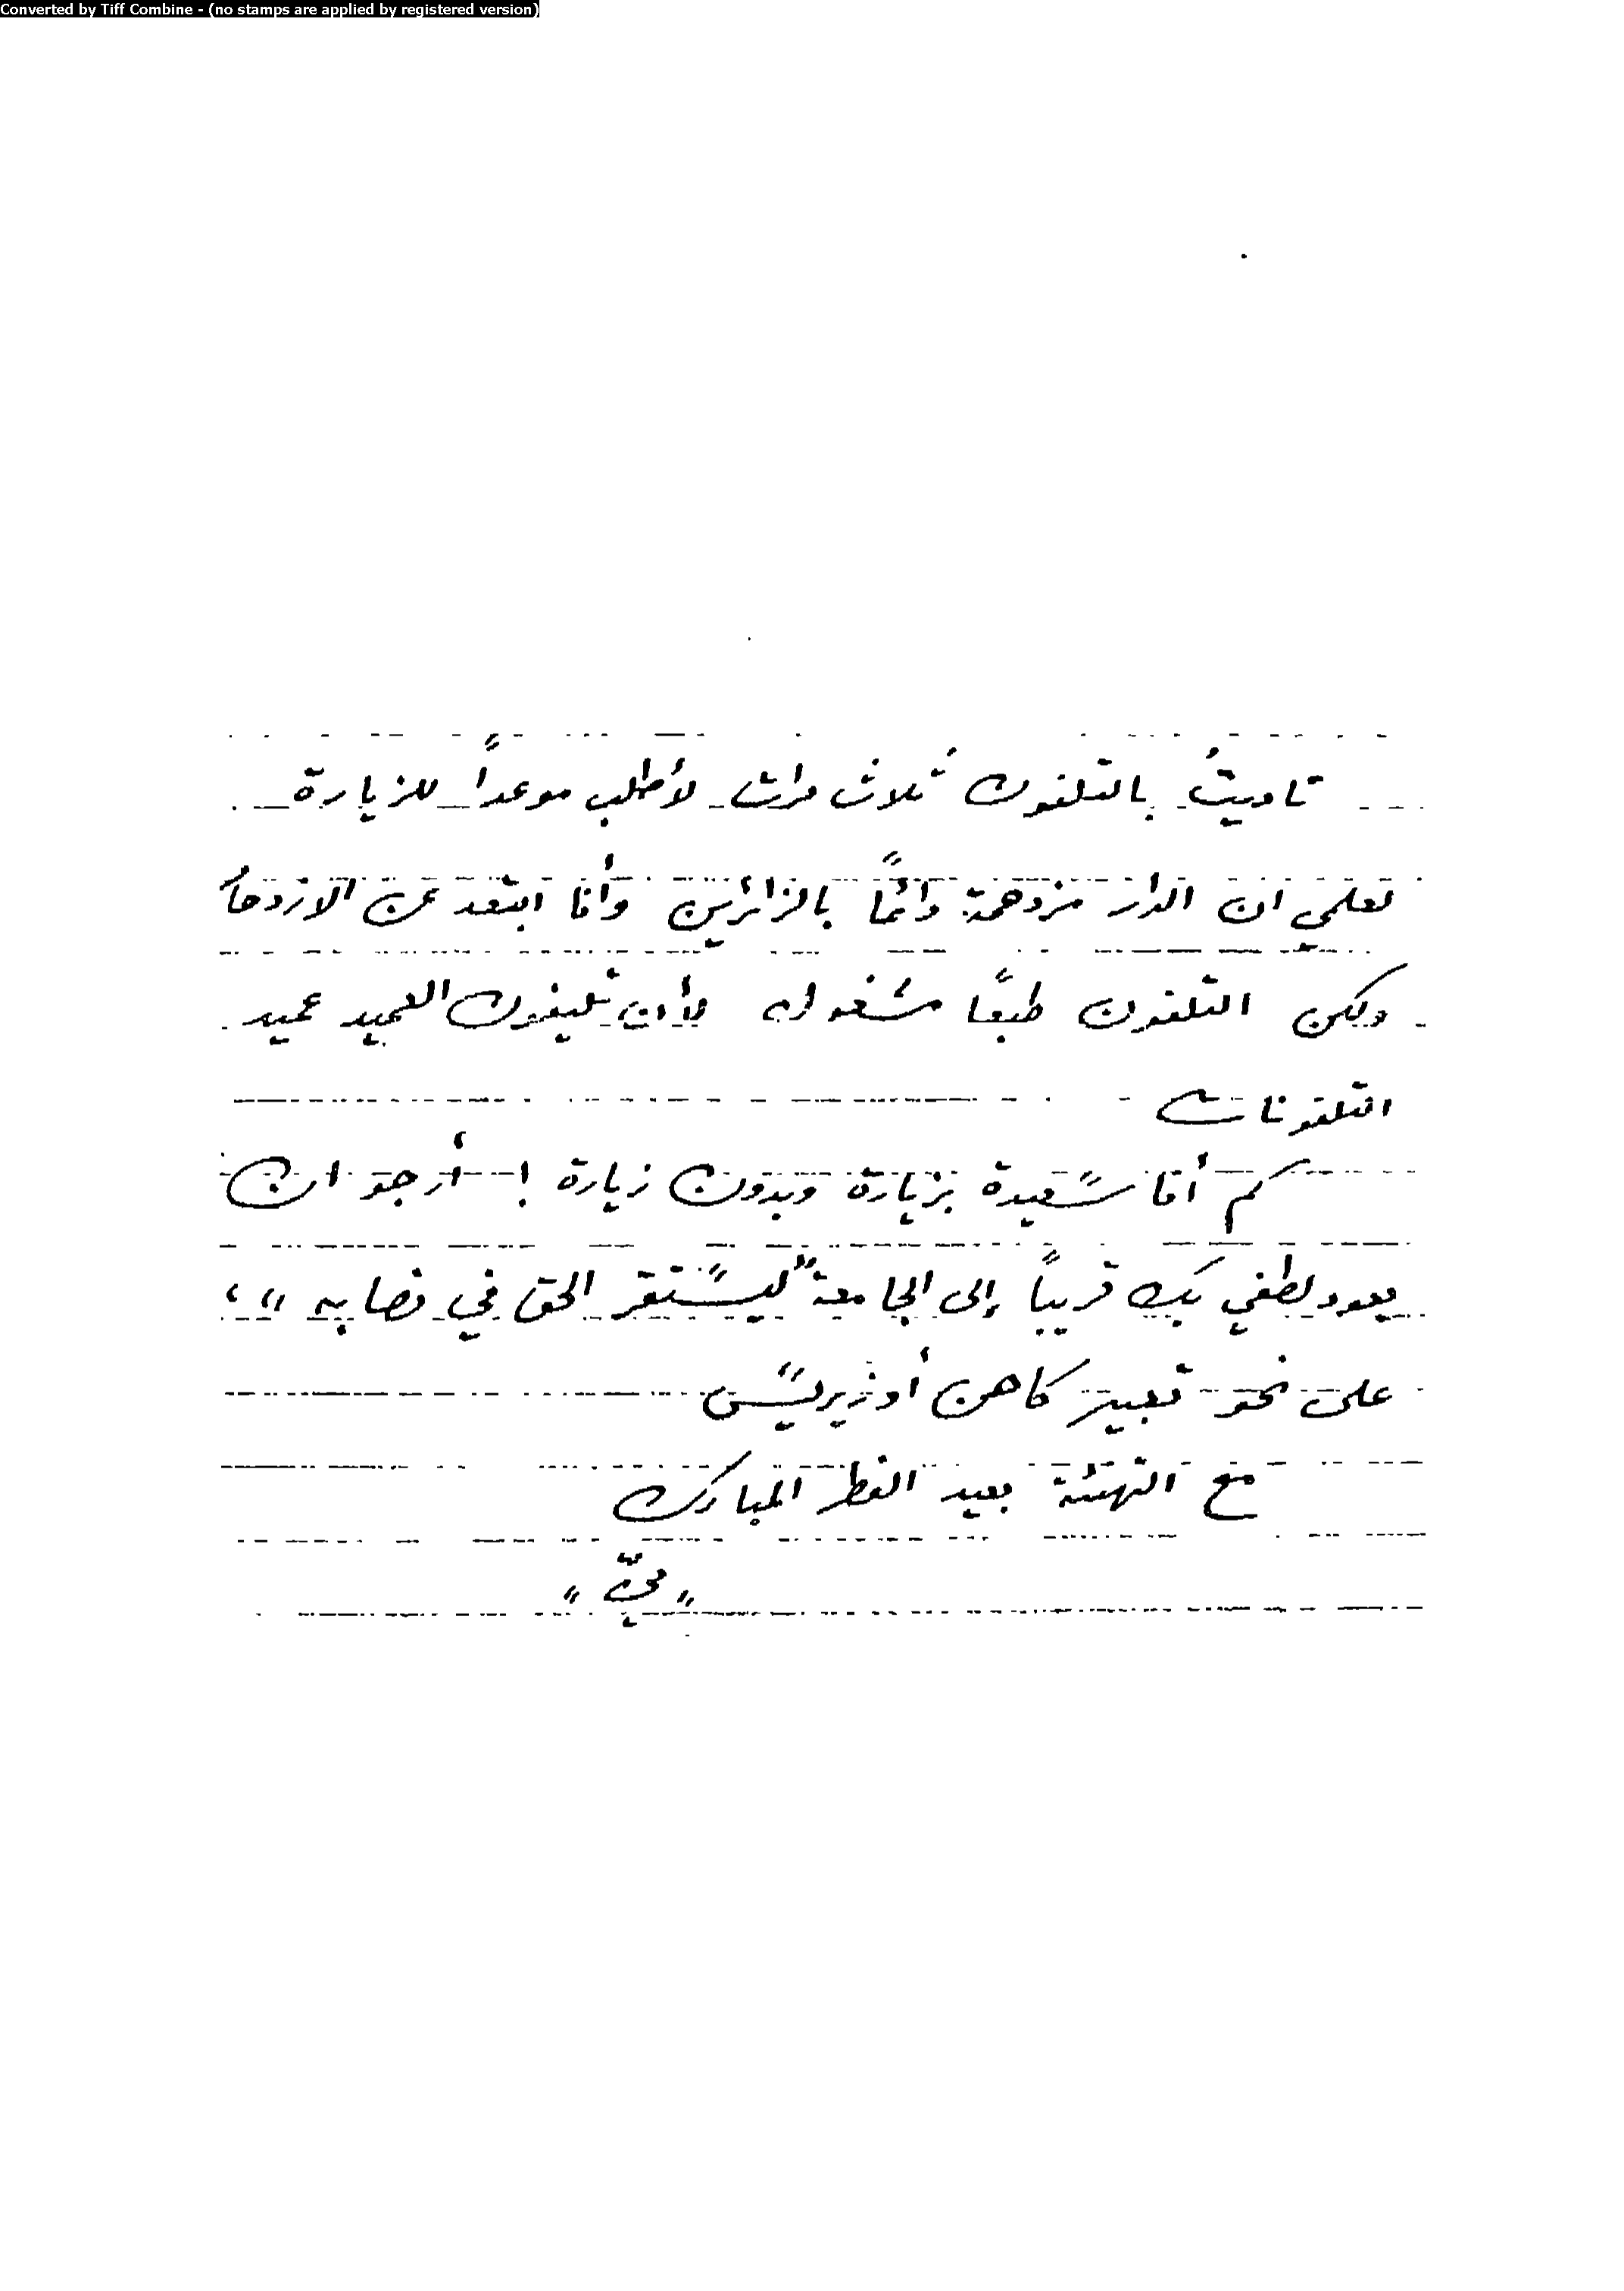 Converted by Tiff Combine - (no stamps are applied by registered version)
ناديتُ بالتلفون ثلاث مرات لأطلب موعداً للزيارة
لعلمي ان الدار مزدحمة دائماً بالزائرين وأنا ابتعد عن الازدحام
ولكن التلفون طبعًا مشغول لأن تليفون العميد عميد
التلفونات
كم أنا سعيدة بزيارة وبدون زيارة ! أرجو ان
يعود لطفي بك قريباً إلى الجامعة "ليستقر الحق في نصابه "،
على نحو تعبير كاهن أوزيريس
مع التهنئة بعيد الفطر المبارك
"ميّ"